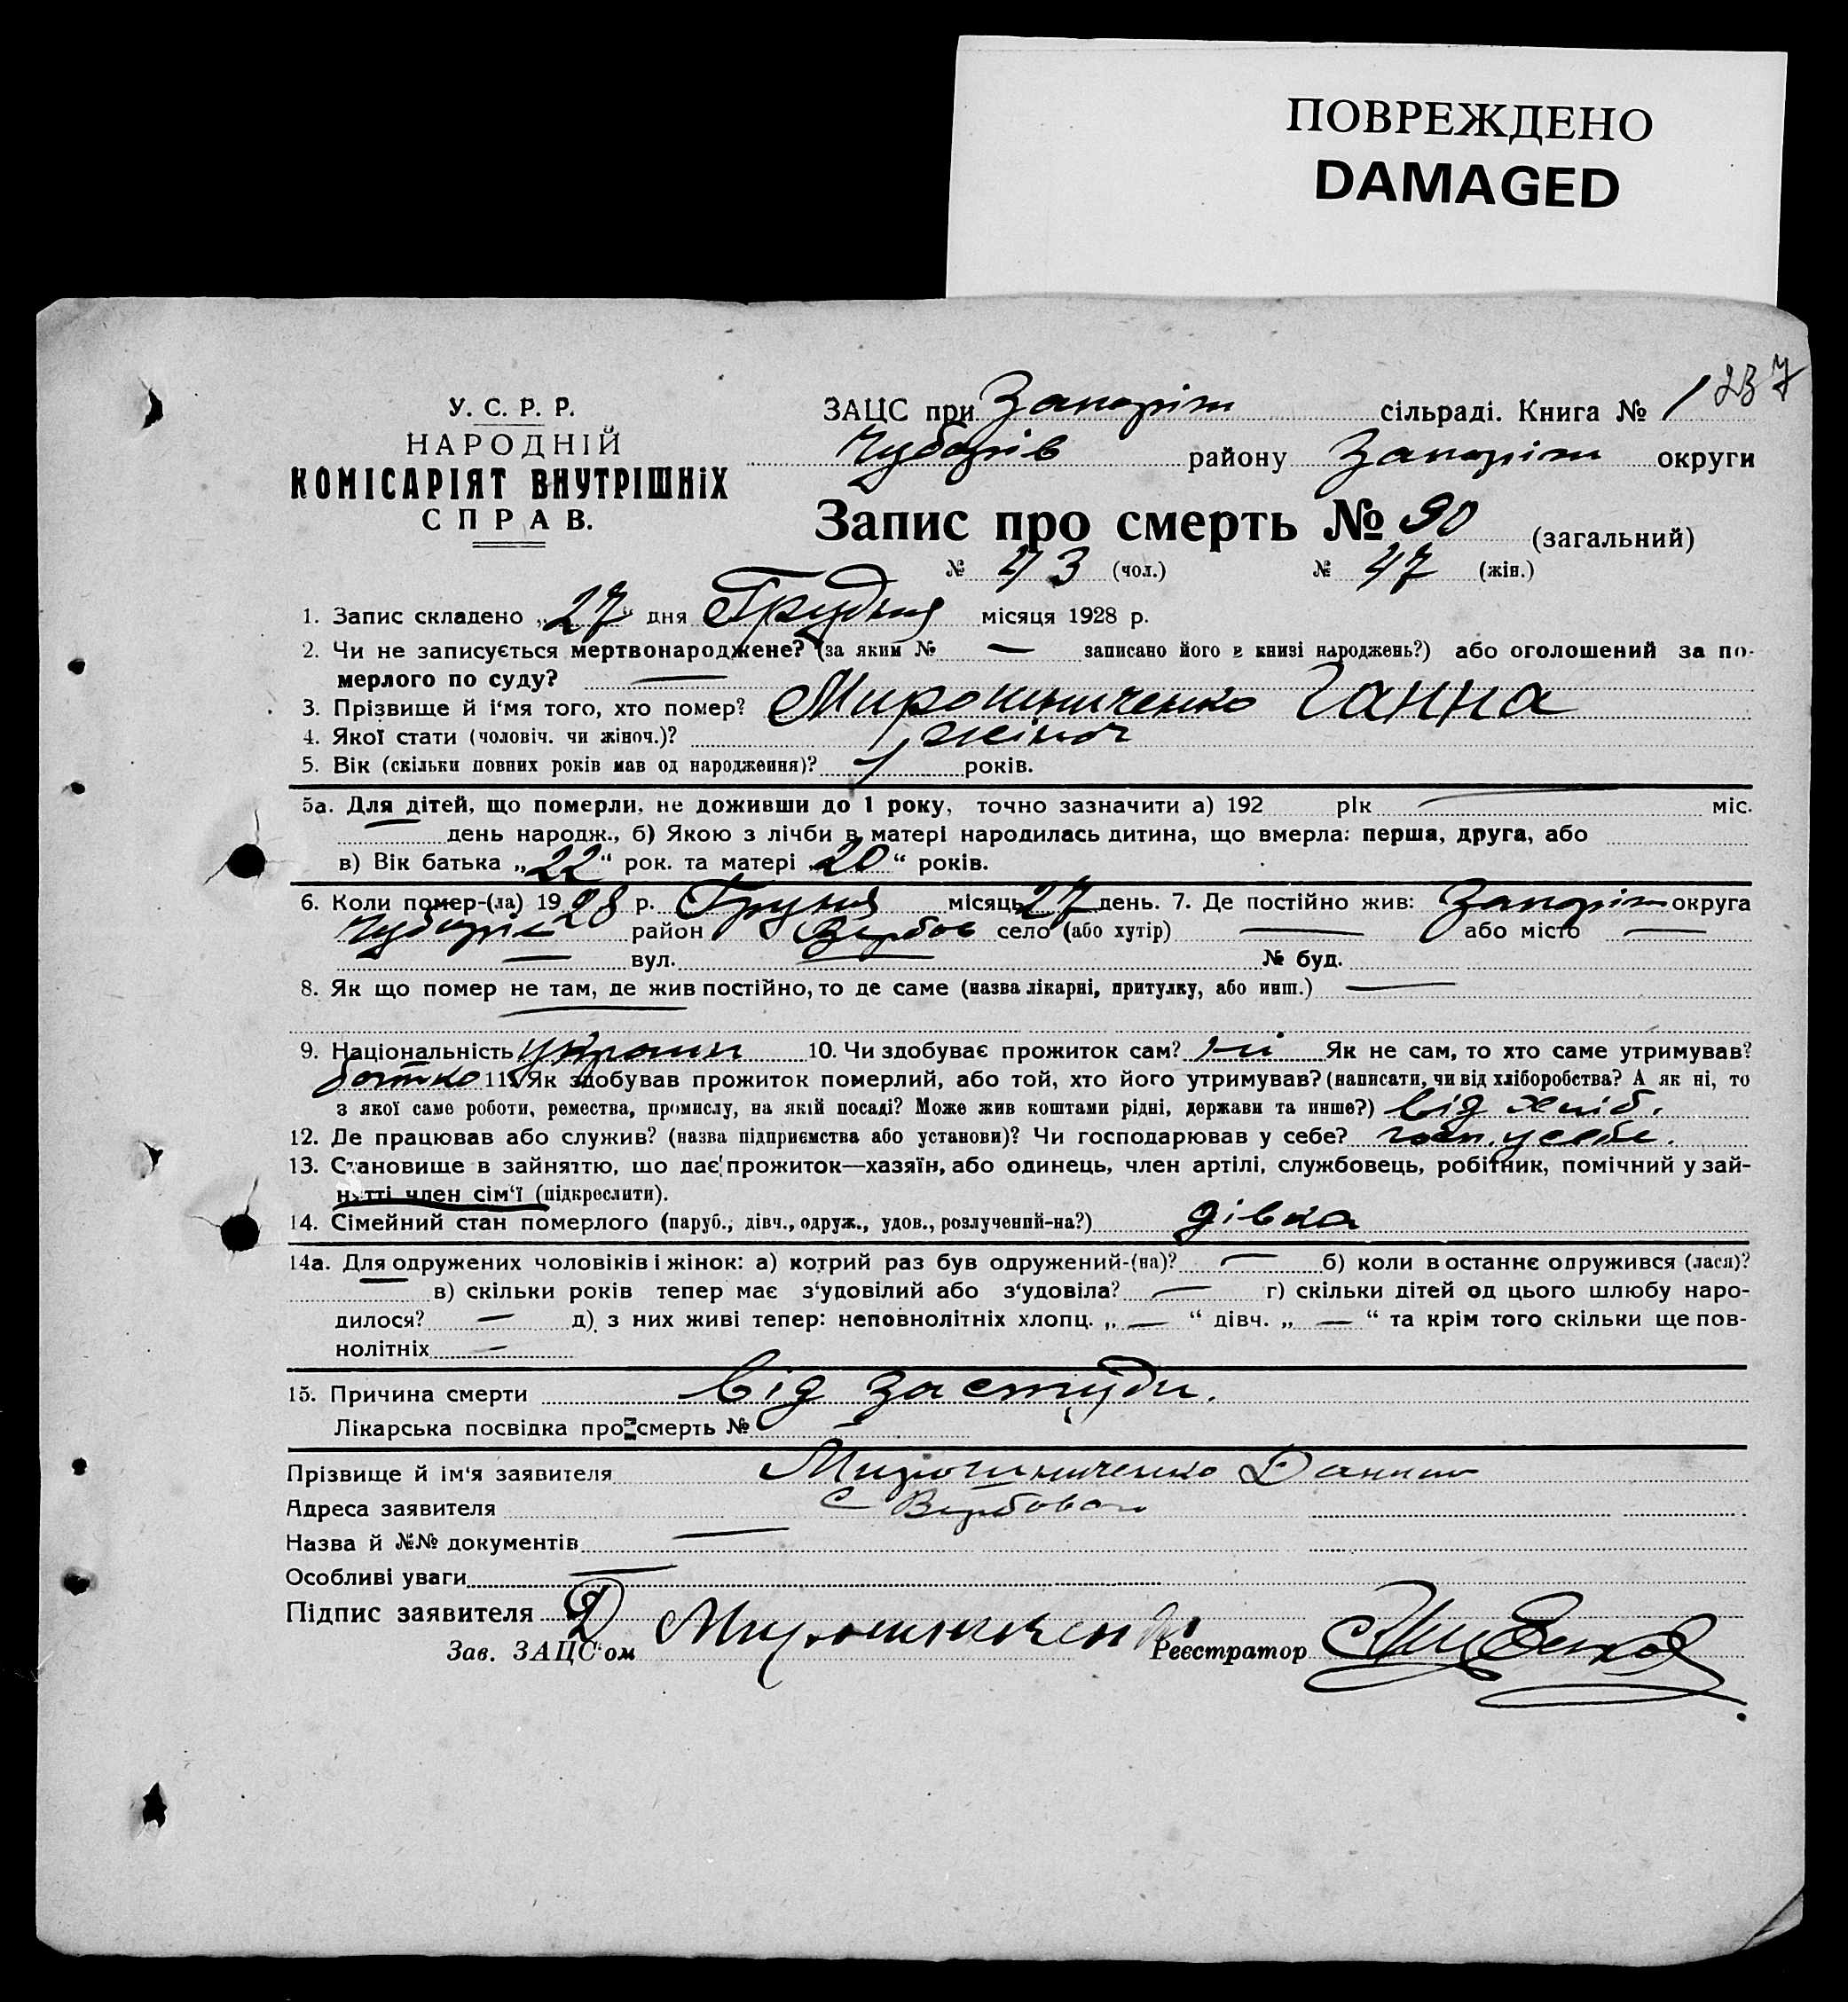 ПОВРЕЖДЕНО
DAMAGED
237
У. С. Р. Р.
НАРОДНІЙ
КОМІСАРІЯТ ВНУТРІШНІХ
СПРАВ.
ЗАЦС при Запоріж сільраді. Книга № 1
Чубарів району Запоріж округи
Запис про смерть № 90 (загальний)
№ 43 (чол.) № 47 (жін.)
1. Запис складено „27“ дня Грудня місяця 1928 р.
2. Чи не записується мертвонароджене? (за яким № — записано його в книзі народжень?) або оголошений за по-
мерлого по суду? —
3. Прізвище й і'мя того, хто помер? Мирошниченко Ганна
4. Якої стати (чоловіч. чи жіноч.)? жіноч
5. Вік (скільки повних років мав од народження)? 1 років.
5а. Для дітей, що померли, не доживши до 1 року, точно зазначити а) 192 рік — міс.
— день народж., б) Якою з лічби в матері народилась дитина, що вмерла: перша, друга, або
в) Вік батька „22“ рок. та матері „20“ років.
6. Коли помер-(ла) 1928 р. Грудня місяць 27 день. 7. Де постійно жив: Запоріж округа
Чубарів район Вербов село (або хутір) — або місто —
— вул. — № буд.
8. Як що помер не там, де жив постійно, то де саме (назва лікарні, притулку, або инш.) —
—
9. Національність україн 10. Чи здобуває прожиток сам? ні Як не сам, то хто саме утримував?
батько 11. Як здобував прожиток померлий, або той, хто його утримував? (написати, чи від хліборобства? А як ні, то
з якої саме роботи, ремества, промислу, на якій посаді? Може жив коштами рідні, держави та инше?) від хліб.
12. Де працював або служив? (назва підприємства або установи)? Чи господарював у себе? госп. у себе.
13. Становище в зайняттю, що дає прожиток—хазяїн, або одинець, член артілі, службовець, робітник, помічний у зай-
нятті член сім'ї (підкреслити).
14. Сімейний стан померлого (паруб., дівч., одруж., удов., розлучений-на?) дівка
14а. Для одружених чоловіків і жінок: а) котрий раз був одружений-(на)? — б) коли в останнє одружився (лася)?
— в) скільки років тепер має з'удовілий або з'удовіла? — г) скільки дітей од цього шлюбу наро-
дилося? — д) з них живі тепер: неповнолітніх хлопц. „ — “ дівч. „ — “ та крім того скільки ще пов-
нолітніх —
15. Причина смерти від застуди.
Лікарська посвідка про смерть №
Прізвище й ім'я заявителя Мирошниченко Данило
Адреса заявителя с Вербово
Назва й №№ документів —
Особливі уваги —
Підпис заявителя Д Мирошниченко
Зав. ЗАЦС'ом Реєстратор